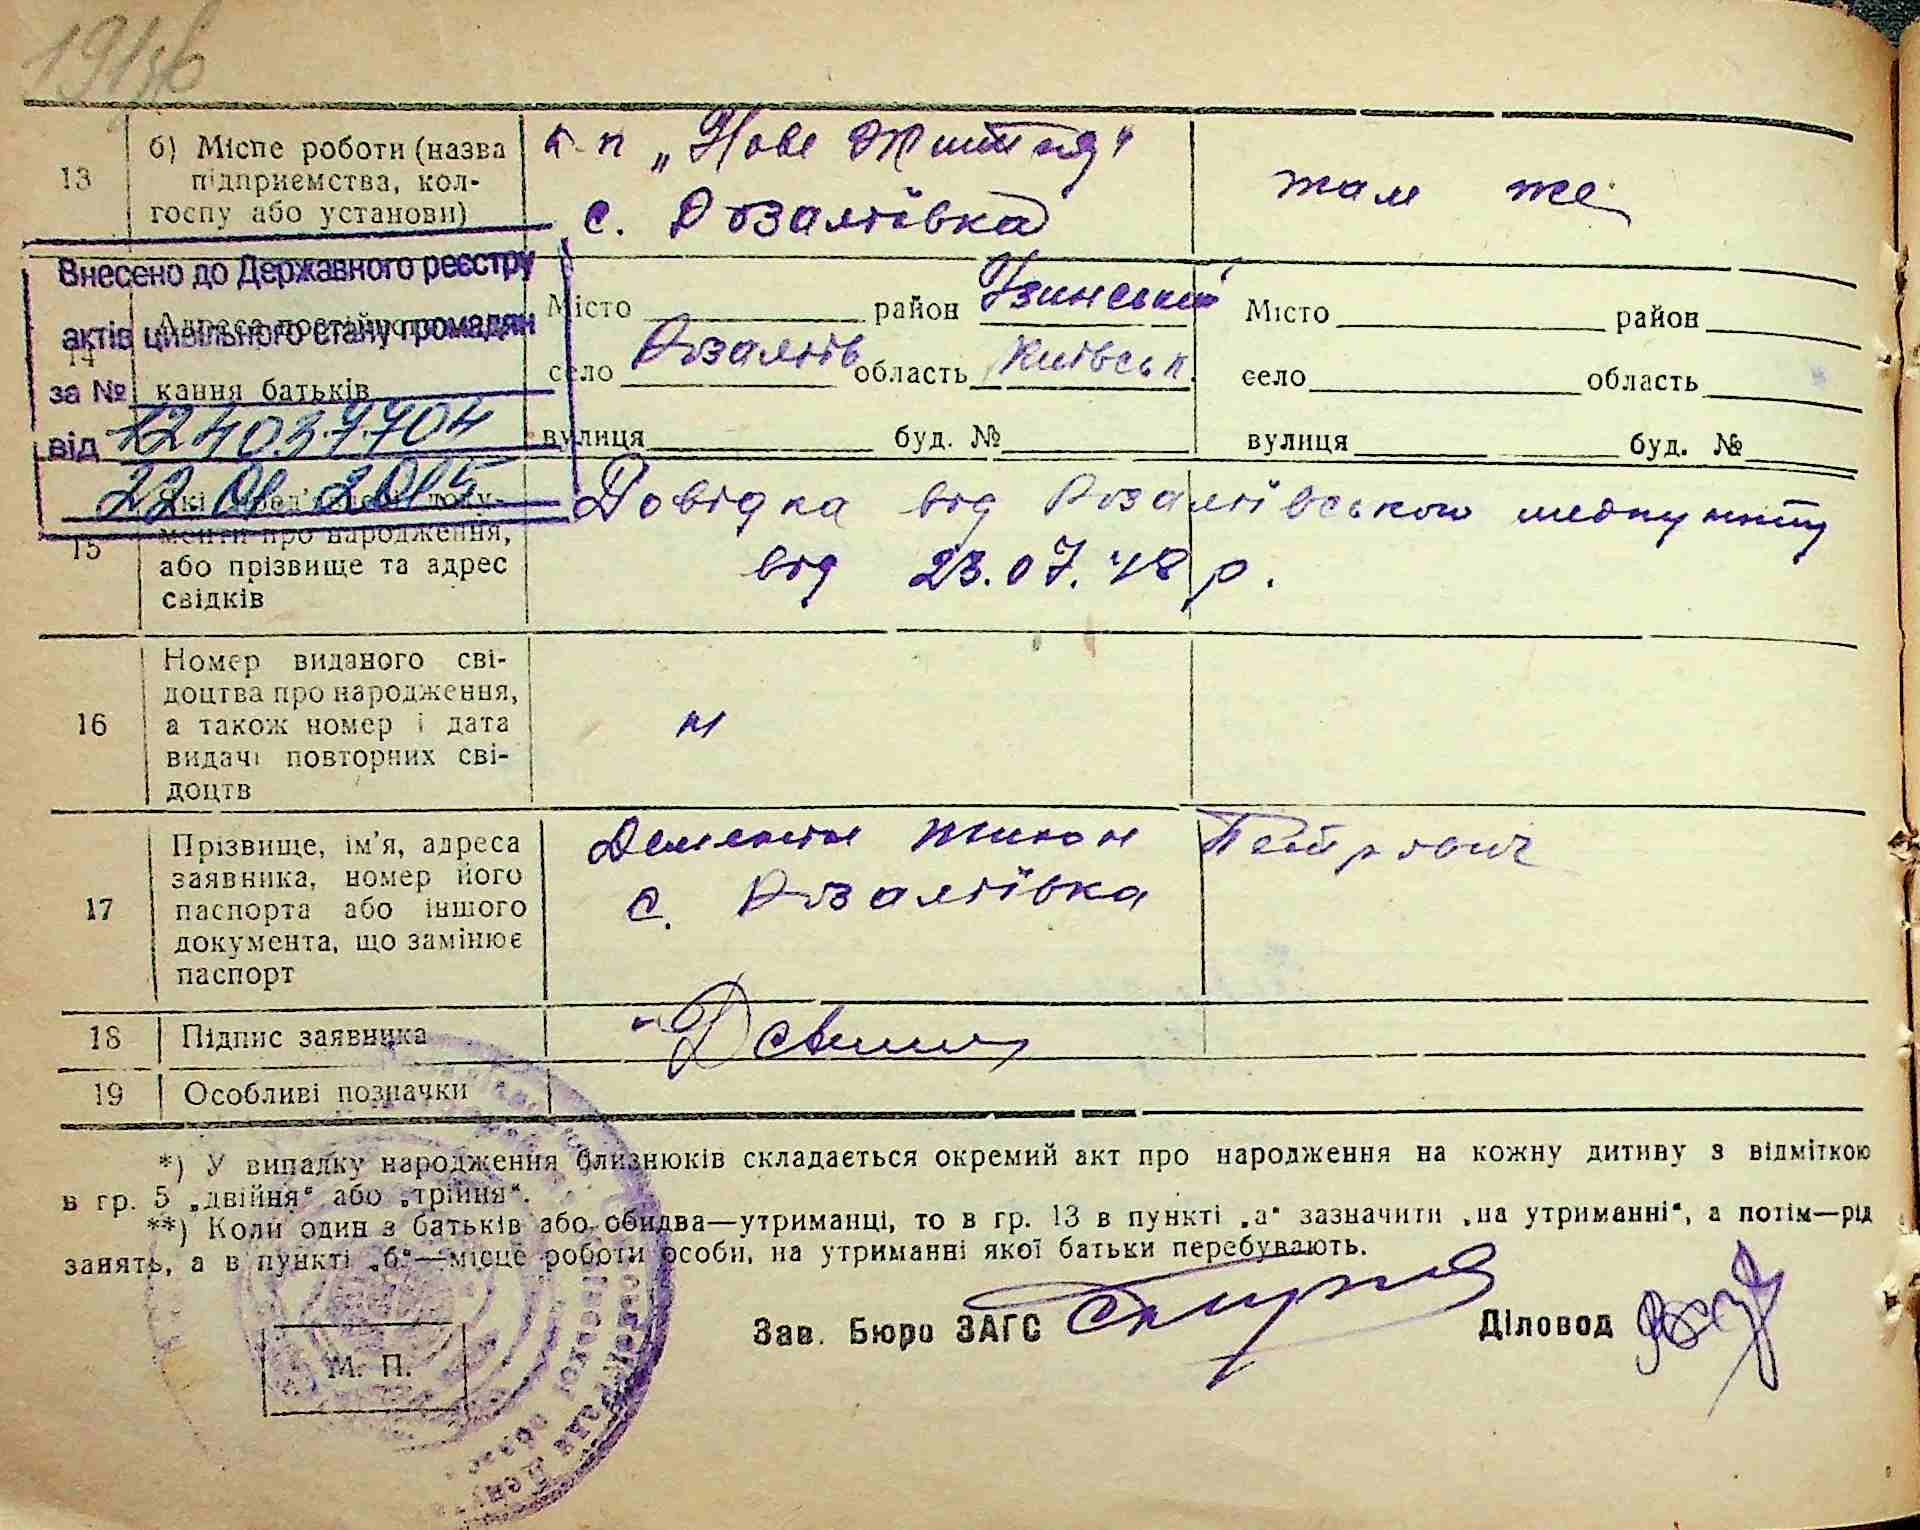 13
б) Місце роботи (назва
підприємства, кол-
госпу або установи)
к-п „Нове Життя"
с. Розаліївка
там же
Внесено до Державного реєстру
актів цивільного стану громадян
за №
124037704
від
22 01 2015
14
кання батьків
Місто район Узинський
село Розаліїв область Київськ.
вулиця буд. №
Місто район
село область
вулиця буд. №
15
менти про народження,
або прізвище та адрес
свідків
Довідка від Розаліївського медпункту
від 23.07.48 р.
16
Номер виданого сві-
доцтва про народження,
а також номер і дата
видачі повторних сві-
доцтв
17
Прізвище, ім'я, адреса
заявника, номер його
паспорта або іншого
документа, що замінює
паспорт
Петрович
с. Розаліївка
18
Підпис заявника
19
Особливі позначки
*) У випадку народження близнюків складається окремий акт про народження на кожну дитину з відміткою
в гр. 5 „двійня" або „трійня".
**) Коли один з батьків або обидва—утриманці, то в гр. 13 в пункті „а" зазначити „на утриманні", а потім—рід
занять, а в пункті „б"—місце роботи особи, на утриманні якої батьки перебувають.
Зав. Бюро ЗАГС
Діловод
М. П.